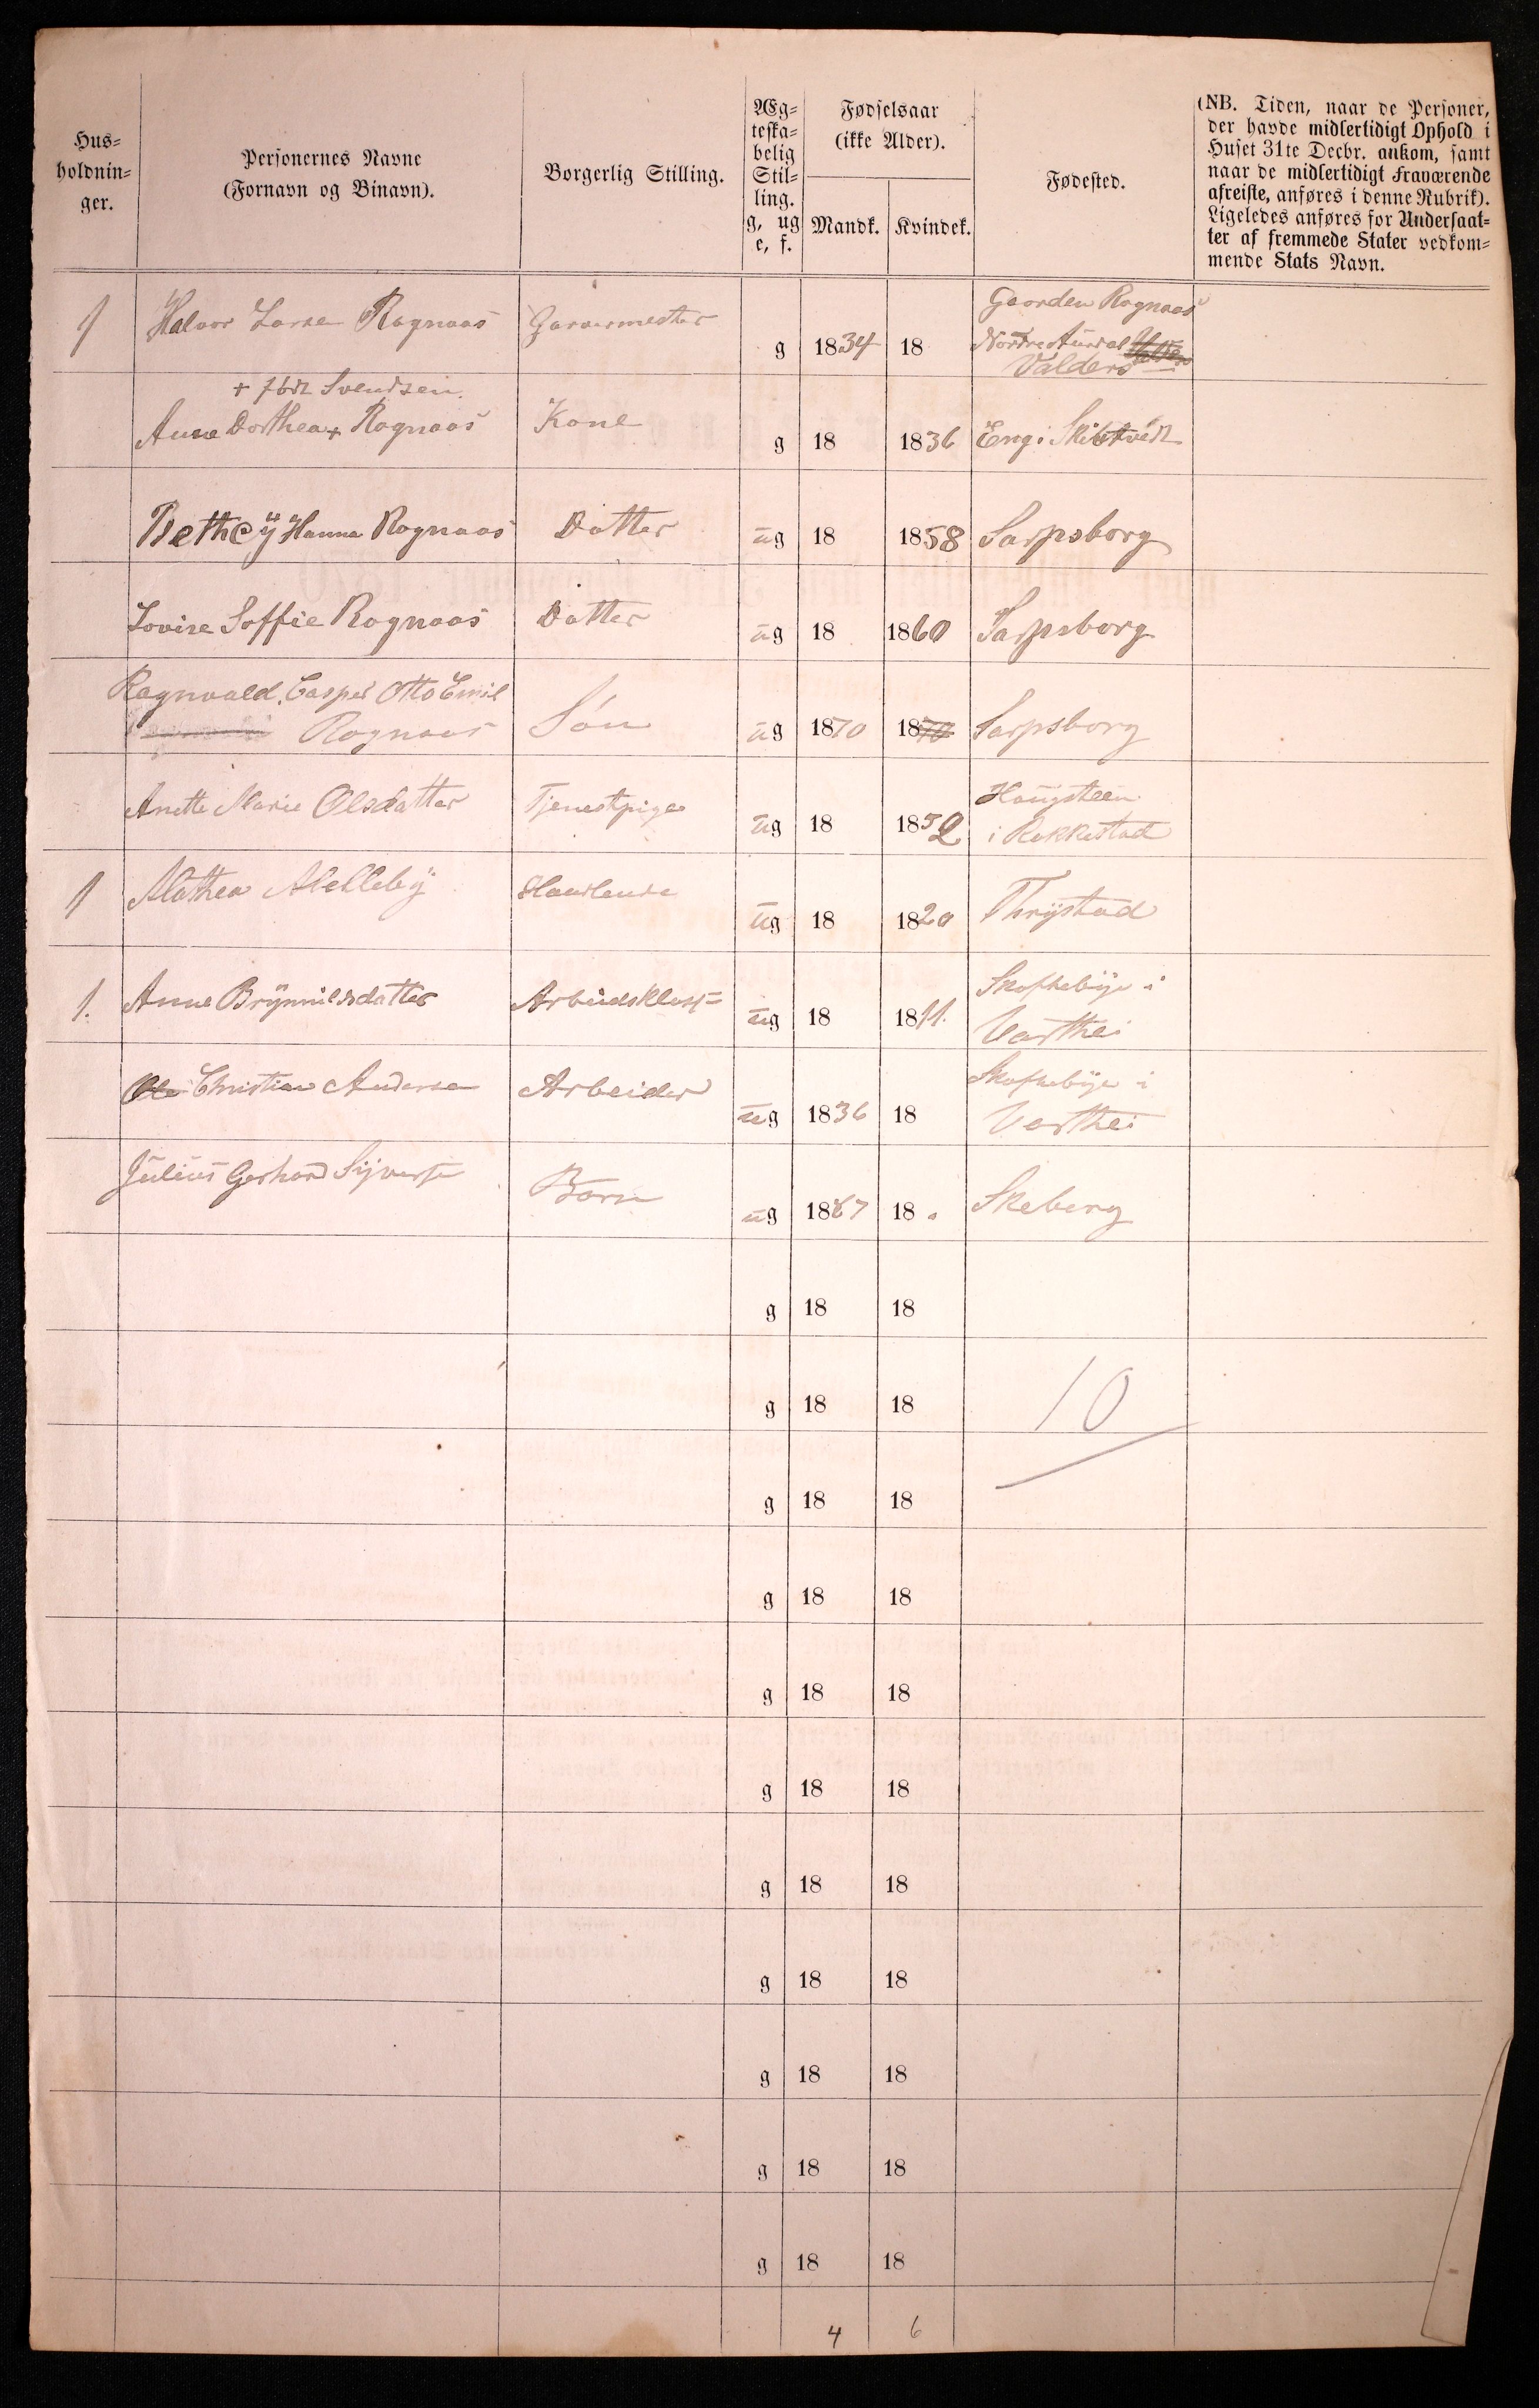 Hus=
holdnin=
ger.
Personernes Navne
(Fornavn og Binavn).
Borgerlig Stilling.
Æg=
teska=
belig
Stil=
ling.
g, ug
e, f.
Fødselsaar
(ikke Alder).
Mandk. Kvindek.
Fødested.
(NB. Tiden, naar de Personer,
der havde midlertidigt Ophold i
Huset 31te Decbr. ankom, samt
naar de midlertidigt Fraværende
afreiste, anføres i denne Rubrik).
Ligeledes anføres for Undersaat=
ter af fremmede Stater vedkom=
mende Stats Navn.
Gaarden Rognaas
1 Halvor Larsen Rognaas Garvermester g 1834 18 Nordre Aurdal
Valders
+ født Svendsen.
Anne Dorthea + Rognaas Kone g 18 1836 Eng i Skibtvedt
Bethey Hanna Rognaas Datter ug 18 1858 Sarpsborg
Lovise Soffie Rognaas Datter ug 18 1860 Sarpsborg
Ragnvald. Casper Otto Emil
Rognaas Søn ug 1870 1870 Sarpsborg
Haugsteen
Anette Marie Olsdatter Tjenestpige ug 18 1852 i Rakkestad
1 Mathea Melleby ug 18 1820 Thrygstad
1. Anne Brynnildsdatter Arbeidsklass= ug 18 1811. Skoftebye i
Varthei
Ole Christian Andersen Arbeider ug 1836 18 Skoftebye i
Varthei
Julius Gerhard Syversen Barn ug 1867 18 Skeberg
g 18 18
g 18 18 10
g 18 18
g 18 18
g 18 18
g 18 18
g 18 18
g 18 18
g 18 18
g 18 18
g 18 18
4 6